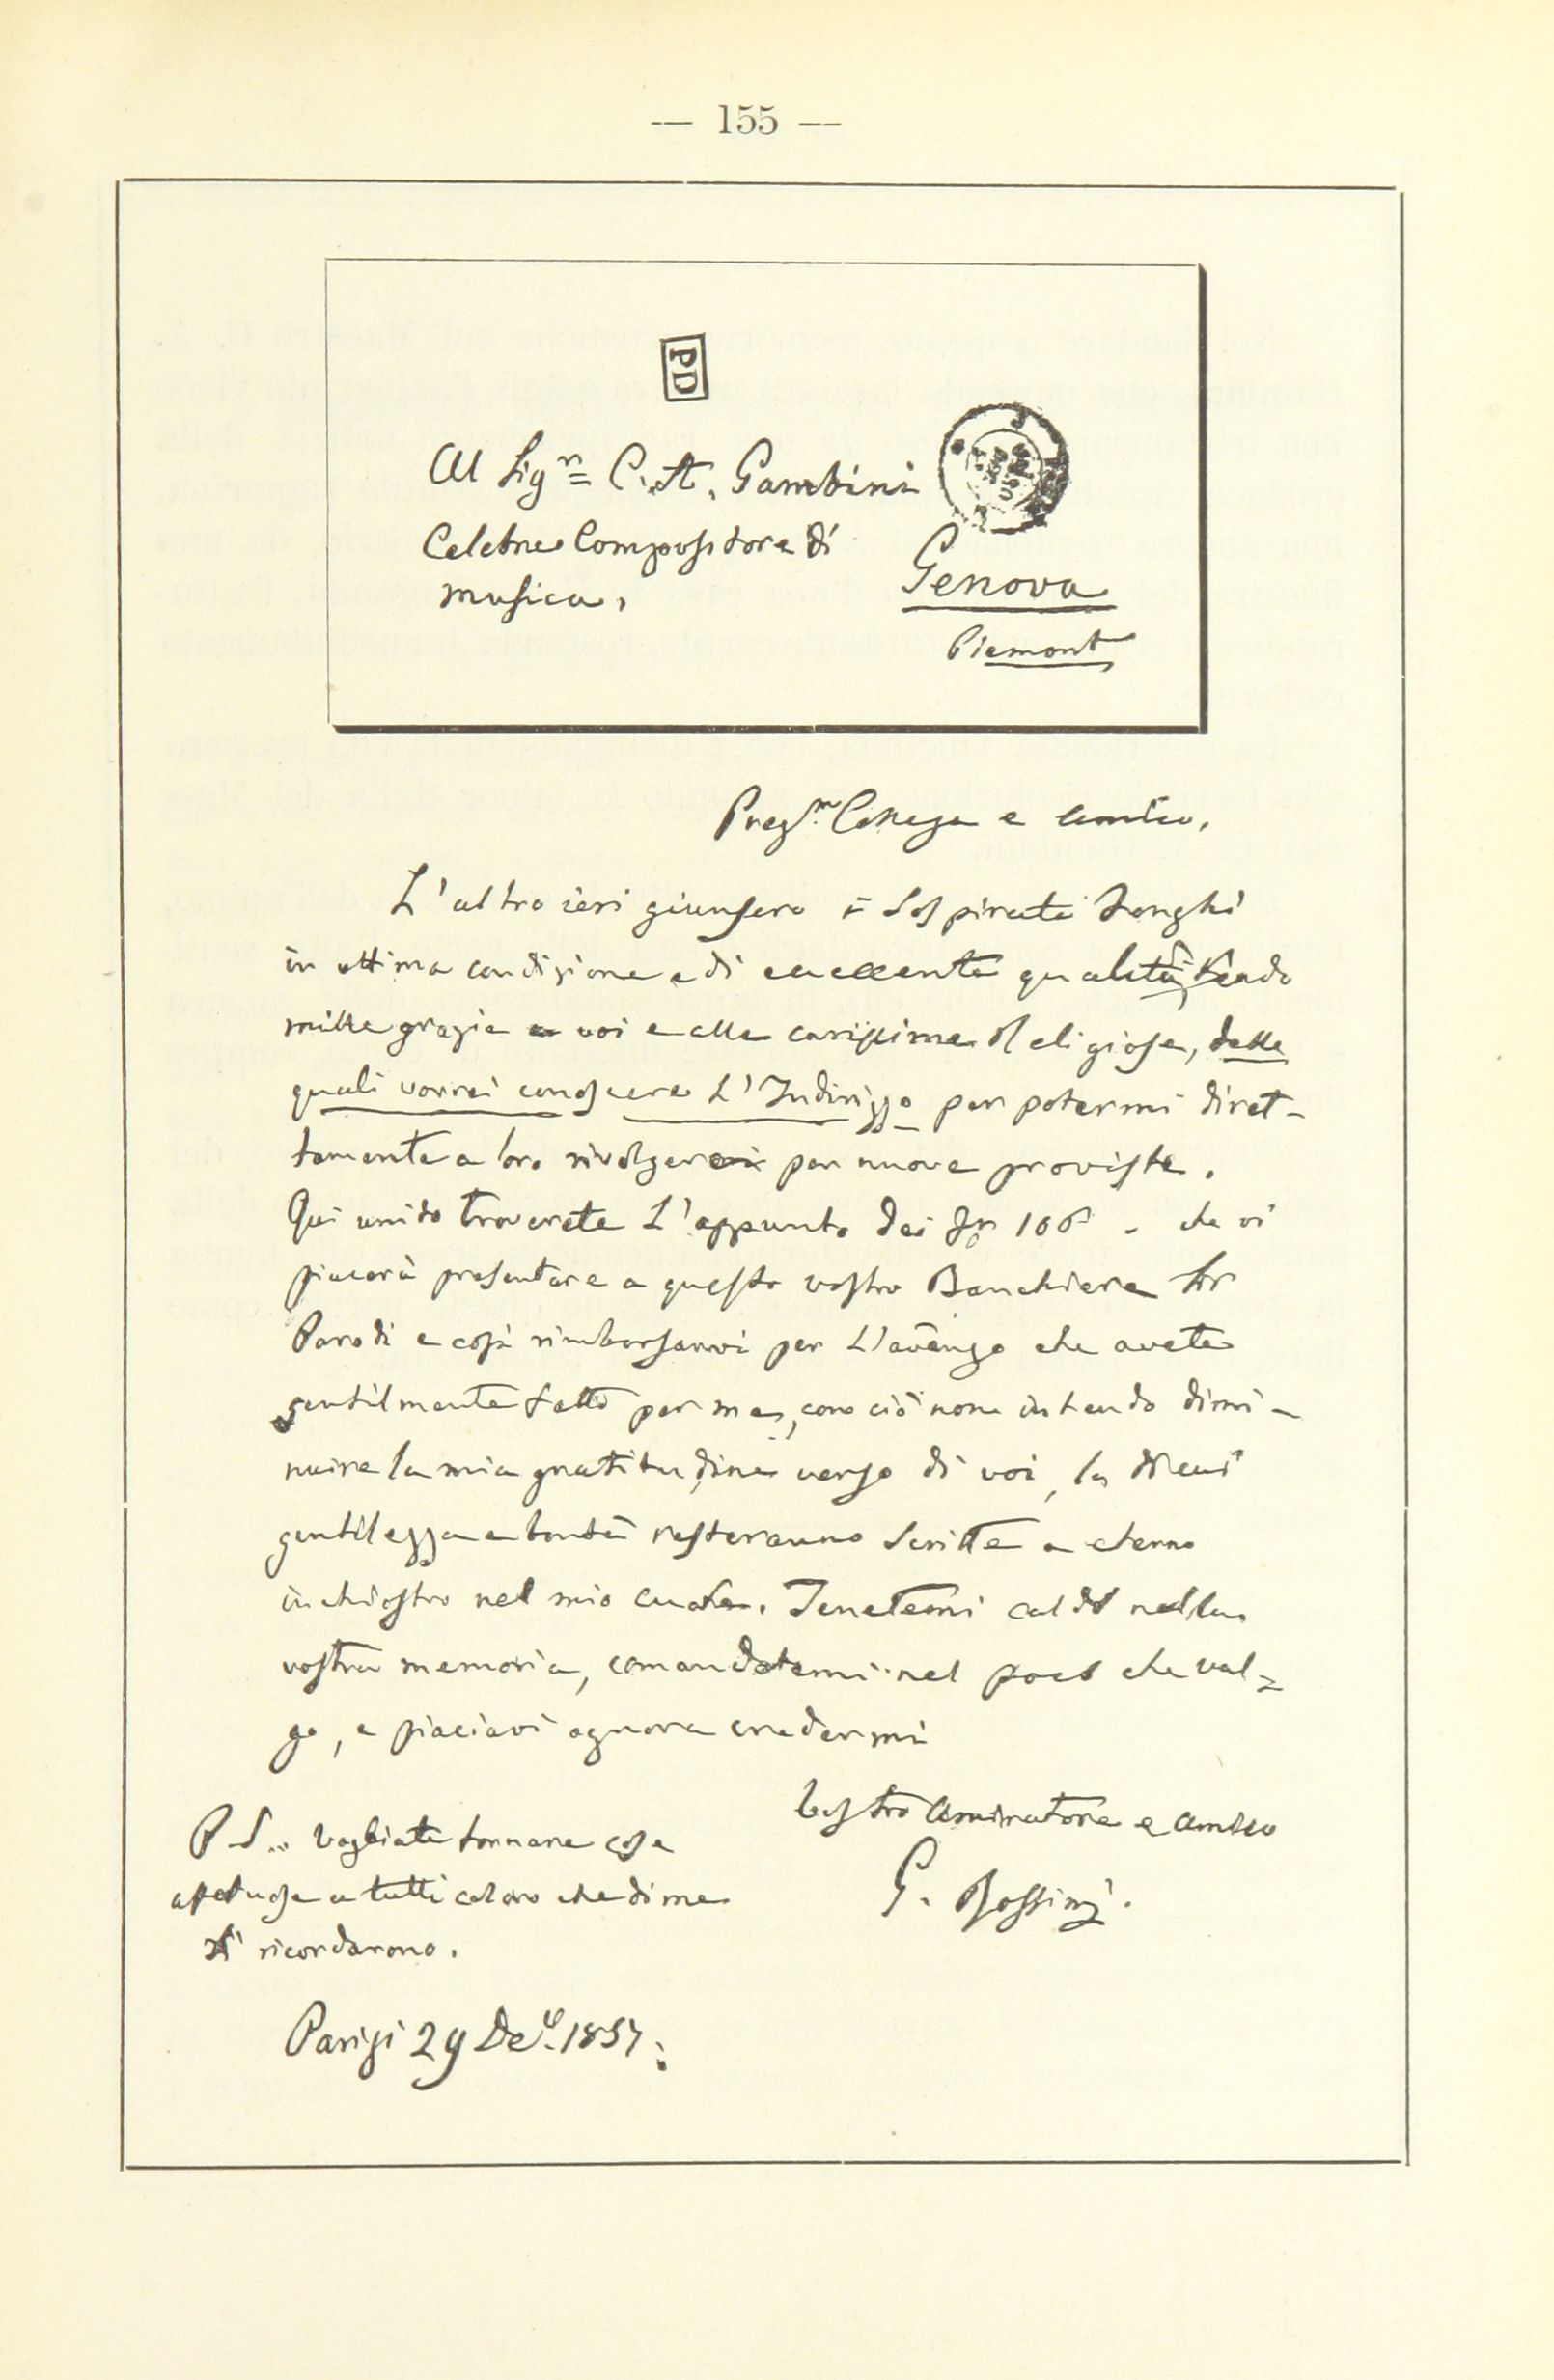 — 155 —
PD
Al Sigr. C. A. Gambini
Celebre Compositore di
musica,
Genova
Piemont
Pregmo. Collega e amico,
L'altro ieri giunsero i sospirati Fonghi
in ottima condizione e di eccellente qualità, Rendo
mille grazie a voi e alle carissime Religiose, delle
quali vorrei conoscere L'Indirizzo per potermi diret-
tamente a loro rivolgere per nuove proviste.
Qui unito troverete L'appunto dei Fr 106 - che vi
piacerà presentare a questo vostro Banchiere Sr
Parodi e così rimborsarvi per L'avanzo che avete
gentilmente fatto per me, con ciò non intendo dimi-
nuire la mia gratitudine verso di voi, le
gentilezza e bontà resteranno scritte a eterno
inchiostro nel mio cuore. Tenetemi caldo nella
vostra memoria, comandatemi nel poco che val-
go, e piaciavi ognora credermi
Vostro Amiratore e Amico
G. Rossini.
P S.. Vogliate tornare cose
afetuose a tutti coloro che di me
si ricordarono.
Parigi 29 De. 1857.